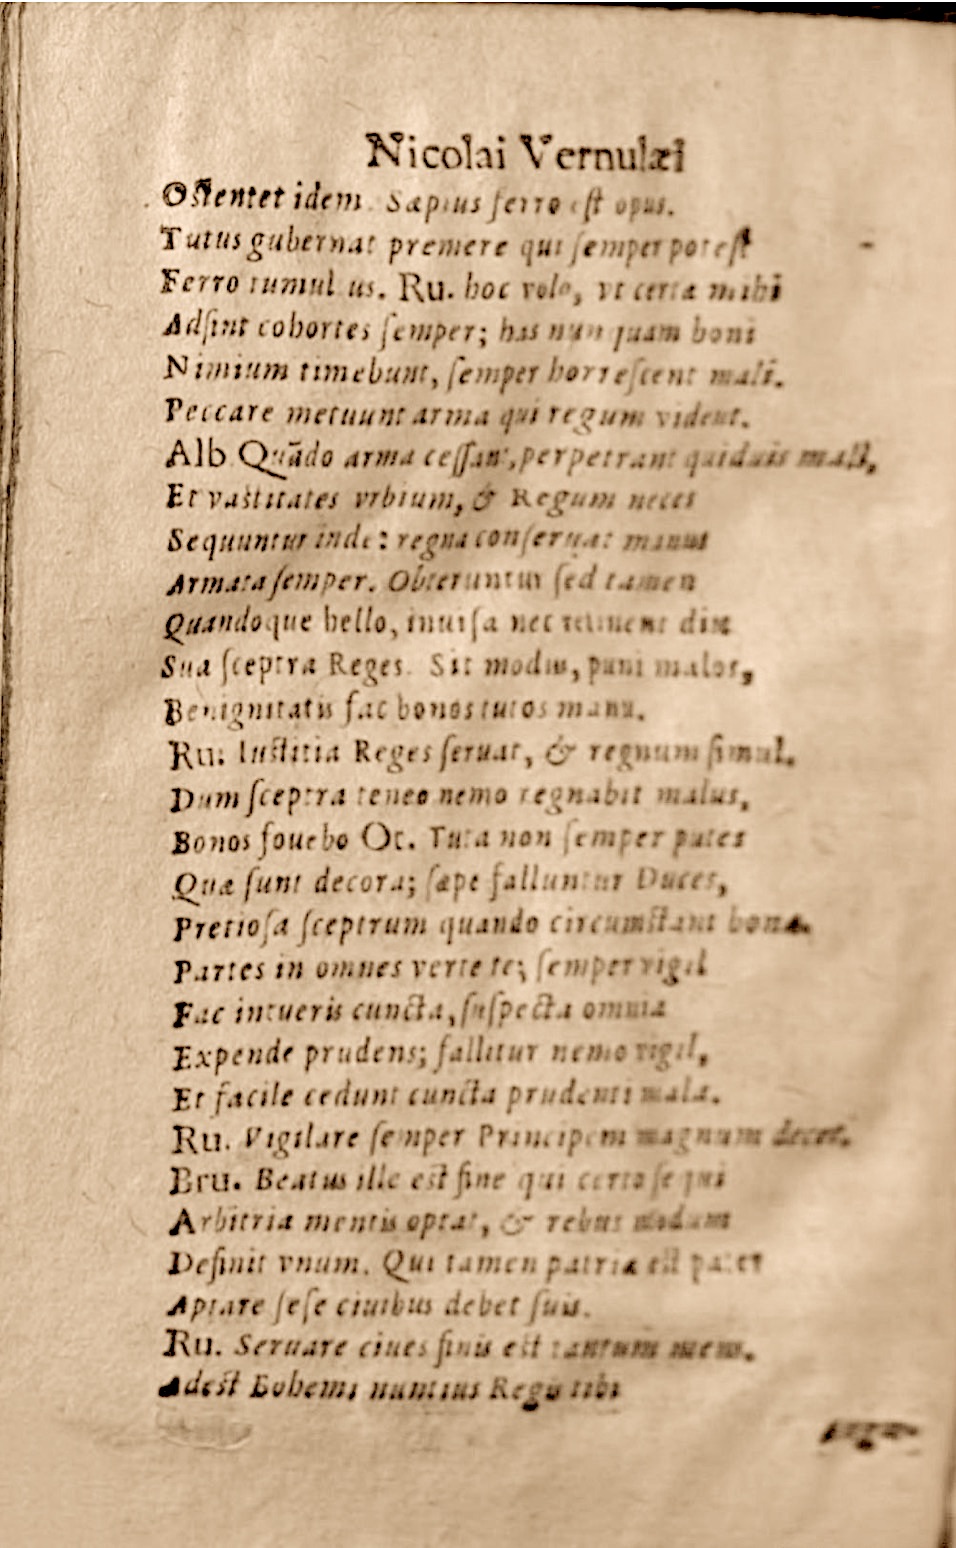 Nicolai Vernulæi
Ostentet idem. Sæpius ferro est opus.
Tutus gubernat premere qui semper potest
Ferro tumul us. Ru. hoc volo, vt certa mihi
Adsint cohortes semper; has nunquam boni
Nimium timebunt, semper horrescent mali.
Peccare metuunt arma qui regum vident.
Alb Quãdo arma cessant, perpetrant quiduis mali,
Et vastitates vrbium, & Regum neces
Sequuntur inde: regna conseruat manus
Armata semper. Obteruntur sed tamen
Quandoque bello, inuisa nec retinent diu
Sua sceptra Reges. Sit modus, puni malos,
Benignitatis fac bonos tutos manu.
Ru: Iustitia Reges seruat, & regnum simul.
Dum sceptra teneo nemo regnabit malus,
Bonos fouebo Oc. Tuta non semper putes
Quæ sunt decora; sæpe falluntur Duces,
Pretiosa sceptrum quando circumstant bona.
Partes in omnes verte te; semper vigil
Fac intueris cuncta, suspecta omnia
Expende prudens; fallitur nemo vigil,
Et facile cedunt cuncta prudenti mala.
Ru. Vigilare semper Principem magnum decet.
Bru. Beatus ille est fine qui certo sequi
Arbitria mentis optat, & rebus modum
Definit vnum. Qui tamen patriæ est pater
Aptare sese ciuibus debet suis.
Ru. Seruare ciues finis est tantum meus.
Adest Bohemi nuntius Regis tibi